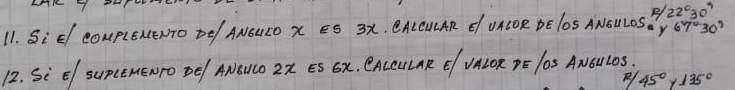 11. Si el COMPLEMENTO DEl ANGULO X ES 3X. CALCULAR El VALOR DE lOS ANGULOS. R/22°30' y 67°30'
12. Si El SUPLEMENTO DEl ANGULO 2X ES 6X. CALCULAR El VALOR DE lOS ANGULOS. R/45° y 135°